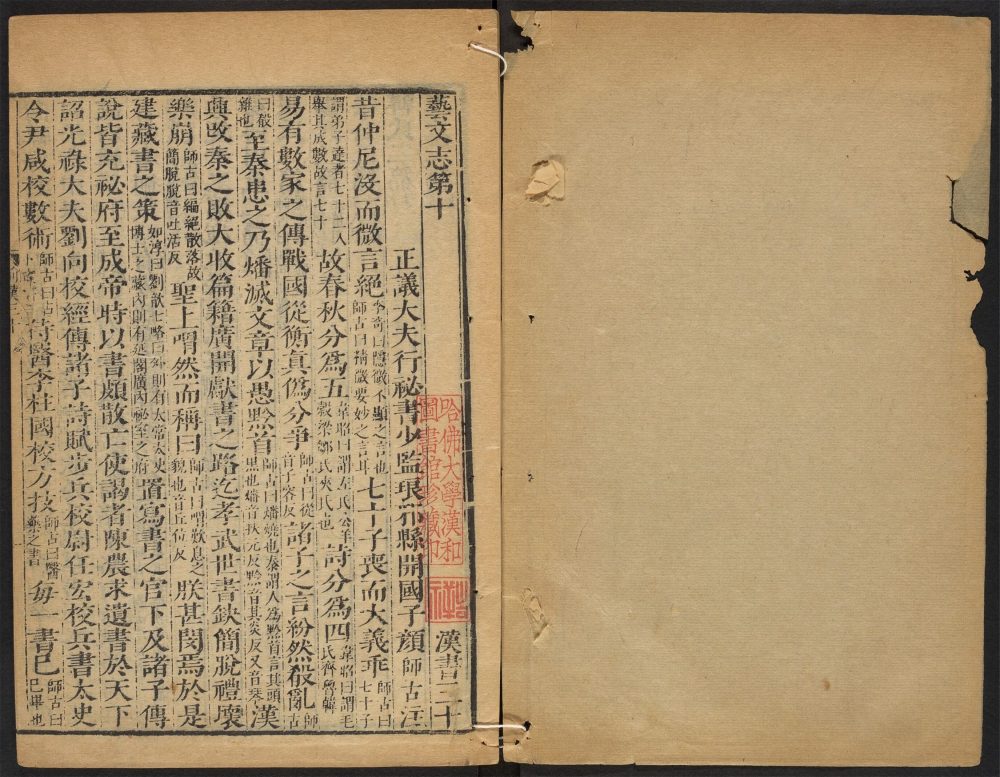 藝文志第十 漢書三十
正議大夫行祕書少監琅邪縣開國子顏師古注
昔仲尼沒而微言絕李奇曰隱微不顯之言也師古曰精微要妙之言耳七十子喪而大義乖師古曰七十子
謂弟子達者七十二人舉其成數故言七十故春秋分為五韋昭曰謂左氏公羊穀梁鄒氏夾氏也詩分為四韋昭曰謂毛氏齊魯韓
易有數家之傳戰國從衡真偽分爭師古曰從音子容反諸子之言紛然殽亂師古
曰殽雜也至秦患之乃燔滅文章以愚黔首師古曰燔燒也秦謂人為黔首言其頭黑也燔音扶元反黔音其炎反又音琴漢
興改秦之敗大收篇籍廣開獻書之路迄孝武世書缺簡脫禮壞
樂崩師古曰編絕散落故簡脫脫音吐活反聖上喟然而稱曰師古曰喟歎息之貌也音丘位反朕甚閔焉於是
建藏書之策如淳曰劉歆七略曰外則有太常太史博士之藏內則有延閣廣內祕室之府置寫書之官下及諸子傳
說皆充祕府至成帝時以書頗散亡使謁者陳農求遺書於天下
詔光祿大夫劉向校經傳諸子詩賦步兵校尉任宏校兵書太史
令尹咸校數術師古曰占卜侍醫李柱國校方技師古曰醫藥之書每一書已師古曰已畢也
哈佛大學漢和
圖書館珍藏印